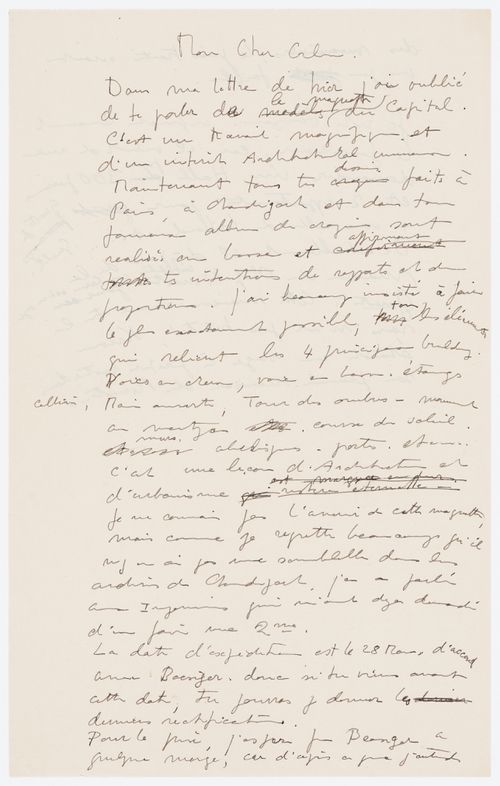 Mon Cher Corbu.
Dans ma lettre de hier j'ai oublié
de te parler de la maquette du Capital.
C'est un travail magnifique et
d'un intérêt Architectural immense.
Maintenant tous tes dons faits à
Paris, à Chandigarh et dans ton
fameux album de croquis sont
réalisés en bosse et affirmant
tes intentions de rapports et de
proportions. J'ai beaucoup insisté à faire
le plus exactement possible, tous les éléments
qui relient les 4 principaux building.
en creux, voie en étangs
collines, Main ouverte, Tour des ombres – monument
au martyrs course du soleil.
murs, obeliques. portes. etc....
C'est une leçon d'Architecture et
d'urbanisme est marquée
Je ne connais pas l'avenir de cette maquette,
mais comme je regrette beaucoup qu'il
n'y en ai pas une semblable dans les
archives de Chandigarh, j'en ai parlé
aux Ingenieurs qui m'ont dejà demandé
d'en faire une 2me.
La date d'expedition est le 28 Mars, d'accord
avec Boesiger. donc si tu viens avant
cette date, tu pourras y donner les
dernieres rectifications.
Pour le prix, j'espère que Boesiger a
quelque marge, car d'après ce que j'entends